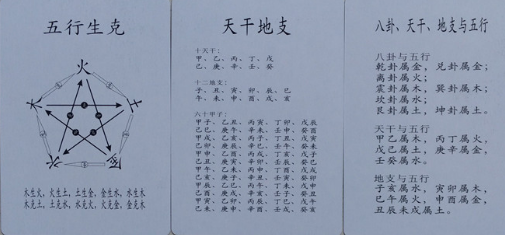 五行生克
火
木
土
水
金
木生火，火生土，土生金，金生水，水生木
木克土，土克水，水克火，火克金，金克木
天干地支
十天干：
甲、乙、丙、丁、戊
己、庚、辛、壬、癸
十二地支：
子、丑、寅、卯、辰、巳
午、未、申、酉、戌、亥
六十甲子：
甲子、乙丑、丙寅、丁卯、戊辰
己巳、庚午、辛未、壬申、癸酉
甲戌、乙亥、丙子、丁丑、戊寅
己卯、庚辰、辛巳、壬午、癸未
甲申、乙酉、丙戌、丁亥、戊子
己丑、庚寅、辛卯、壬辰、癸巳
甲午、乙未、丙申、丁酉、戊戌
己亥、庚子、辛丑、壬寅、癸卯
甲辰、乙巳、丙午、丁未、戊申
己酉、庚戌、辛亥、壬子、癸丑
甲寅、乙卯、丙辰、丁巳、戊午
己未、庚申、辛酉、壬戌、癸亥
八卦、天干、地支与五行
八卦与五行
乾卦属金，兑卦属金；
离卦属火；
震卦属木，巽卦属木；
坎卦属水；
艮卦属土，坤卦属土。
天干与五行
甲乙属木，丙丁属火，
戊己属土，庚辛属金，
壬癸属水。
地支与五行
子亥属水，寅卯属木，
巳午属火，申酉属金，
丑辰未戌属土。